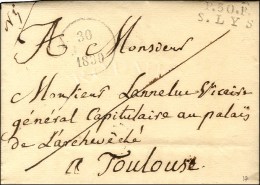 P.30.P.
S. LYS
30
1830
A Monsieur
Monsieur Lannelue Vicaire
général Capitulaire au palais
de L'archevêché
a Toulouse